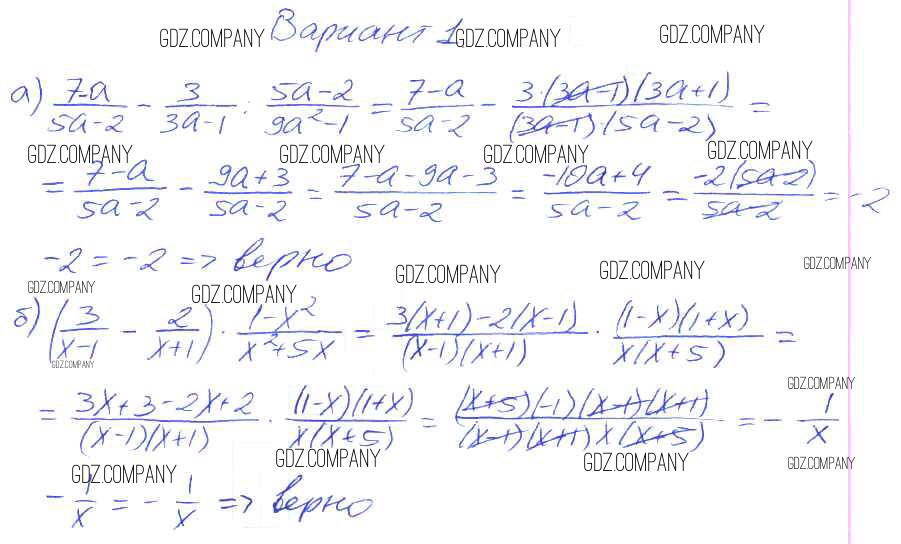 Вариант 1
GDZ.COMPANY GDZ.COMPANY GDZ.COMPANY
а) (7-a)/(5a-2) - 3/(3a-1) : (5a-2)/(9a²-1) = (7-a)/(5a-2) - (3·(3a-1)(3a+1))/((3a-1)(5a-2)) =
GDZ.COMPANY GDZ.COMPANY GDZ.COMPANY GDZ.COMPANY
= (7-a)/(5a-2) - (9a+3)/(5a-2) = (7-a-9a-3)/(5a-2) = (-10a+4)/(5a-2) = (-2(5a-2))/(5a-2) = -2
-2 = -2 => верно
GDZ.COMPANY GDZ.COMPANY GDZ.COMPANY
GDZ.COMPANY GDZ.COMPANY
б) (3/(x-1) - 2/(x+1)) · (1-x²)/(x²+5x) = (3(x+1)-2(x-1))/((x-1)(x+1)) · ((1-x)(1+x))/(x(x+5)) =
GDZ.COMPANY
GDZ.COMPANY
= (3x+3-2x+2)/((x-1)(x+1)) · ((1-x)(1+x))/(x(x+5)) = ((x+5)(-1)(x-1)(x+1))/((x-1)(x+1)x(x+5)) = -1/x
GDZ.COMPANY GDZ.COMPANY GDZ.COMPANY GDZ.COMPANY
-1/x = -1/x => верно